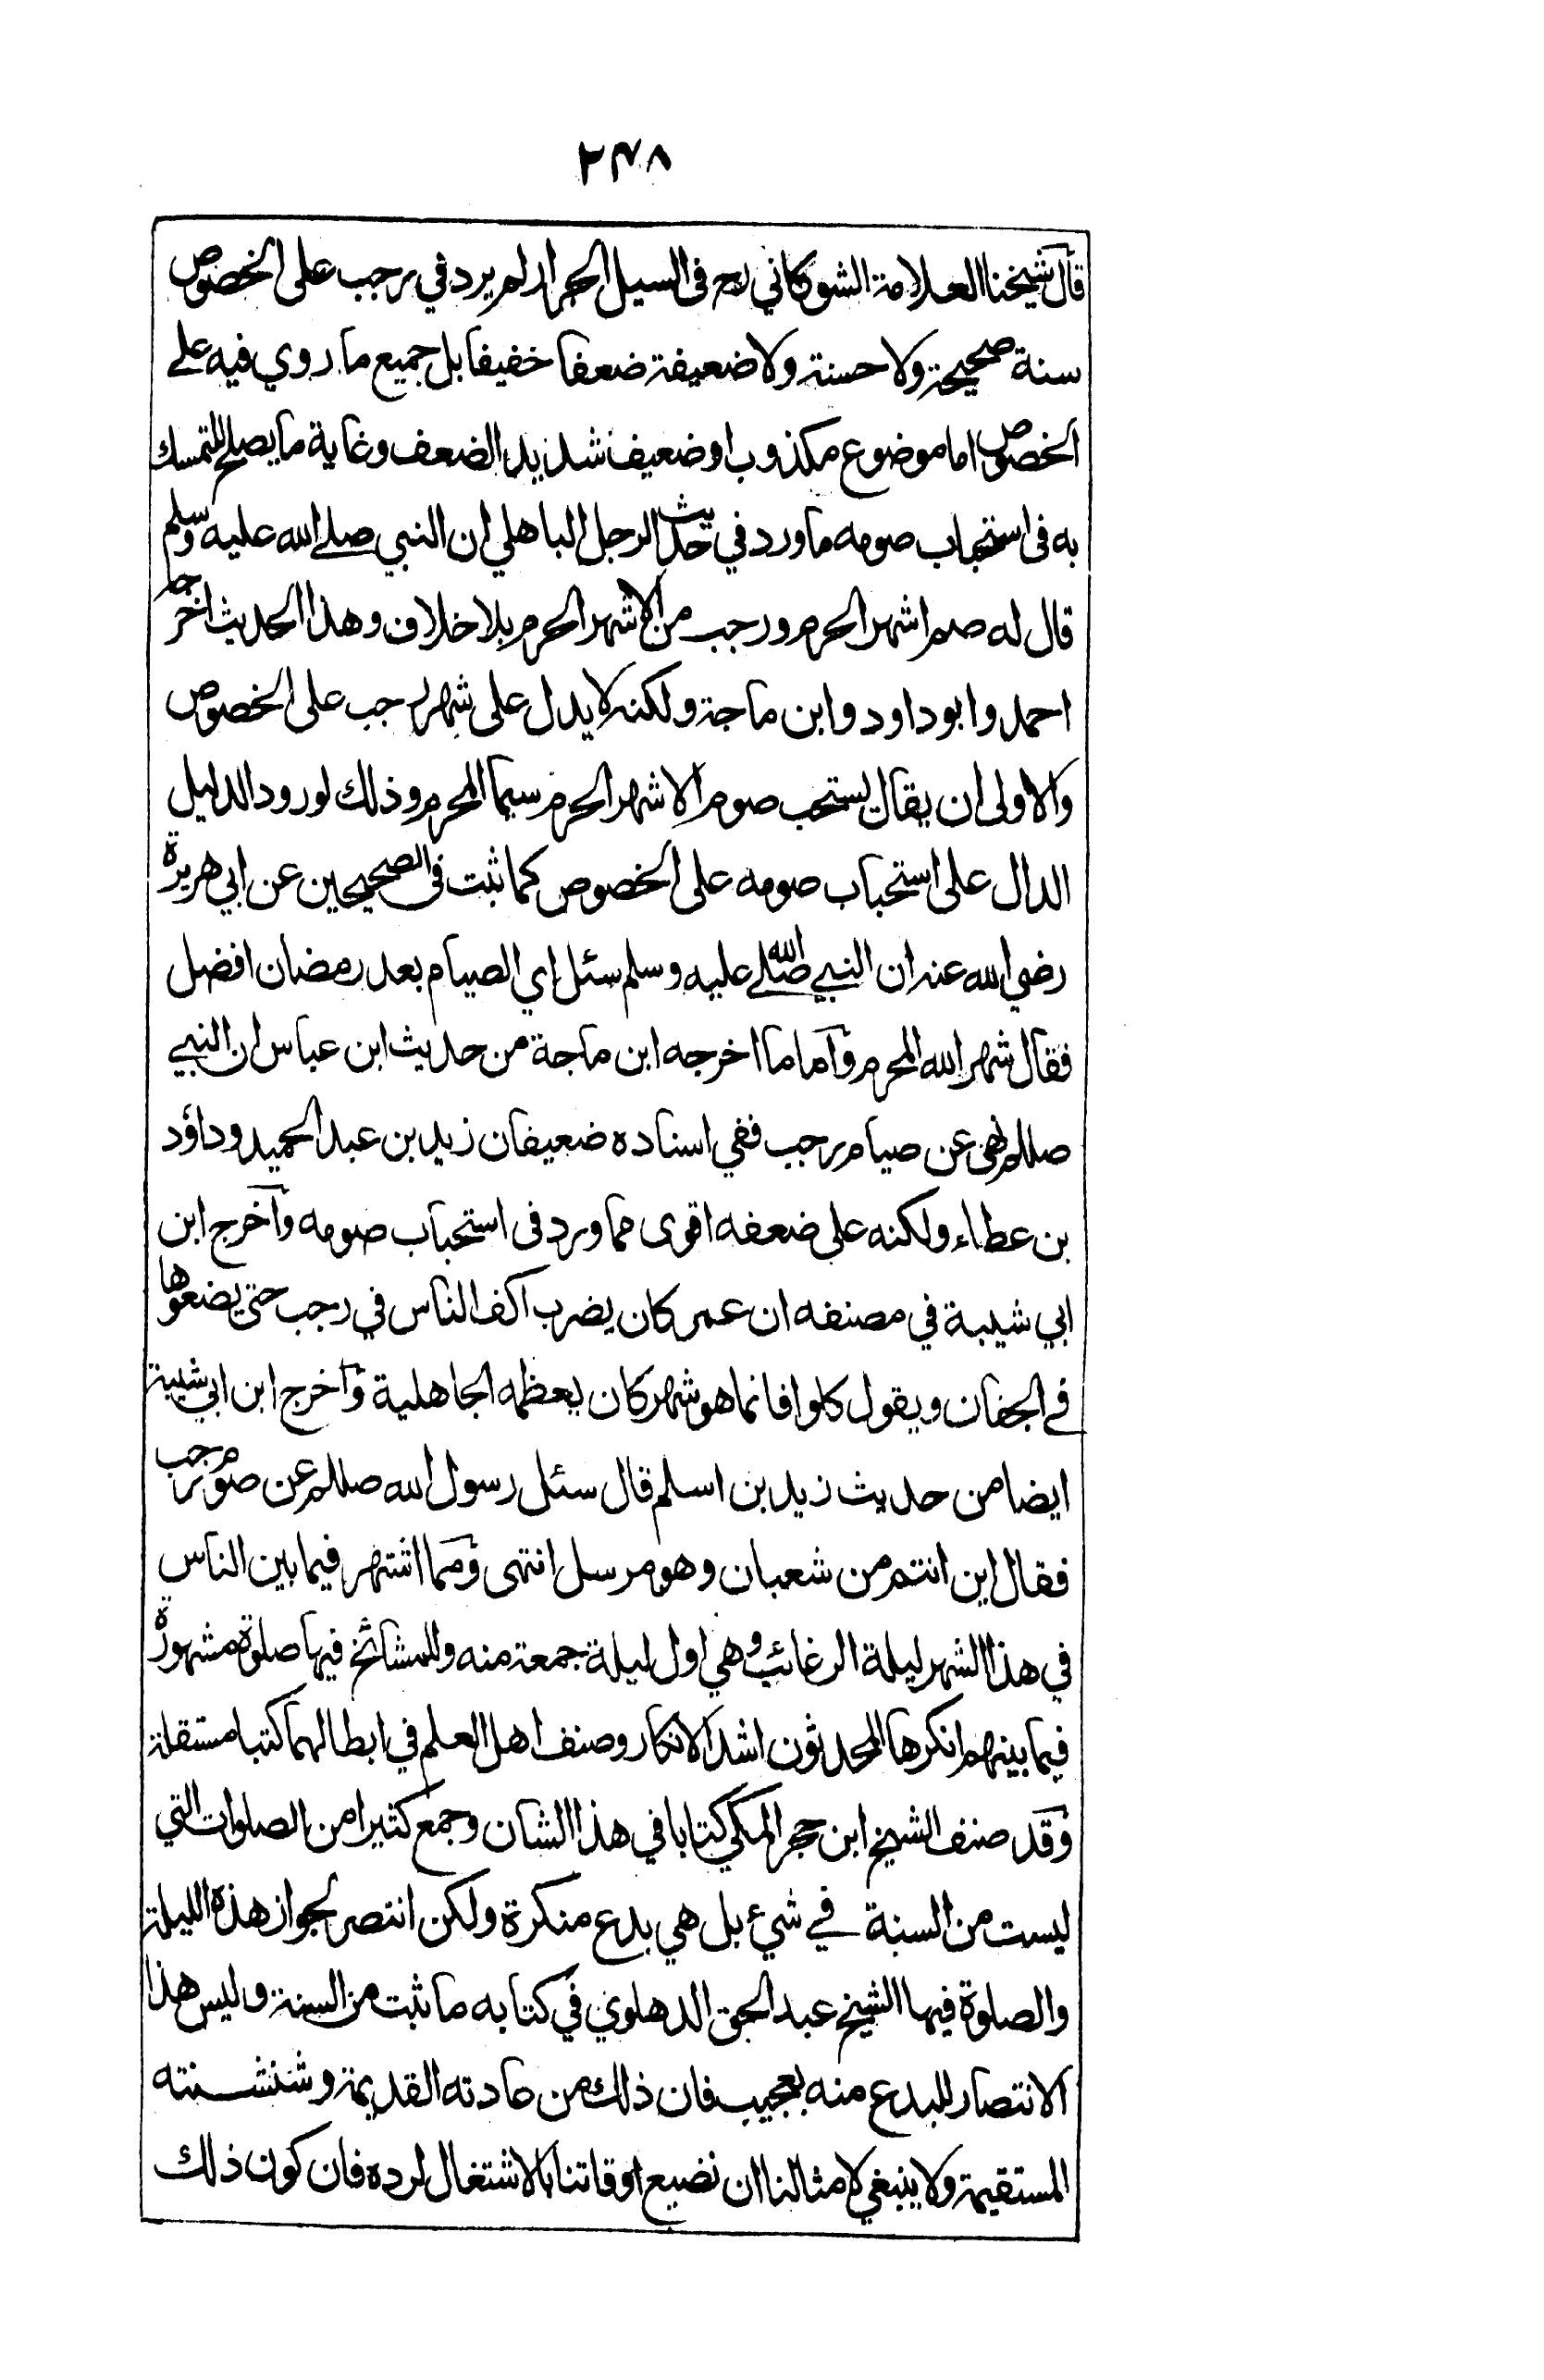 ۲۴۸
قال شيخنا العلامة الشوكاني رح فى السيل الجرار لم يرد في رجب على الخصوص
سنة صحيحة ولا حسنة ولا ضعيفة ضعفا خفيفا بل جميع ما روي فيه على
الخصوص اما موضوع مكذوب او ضعيف شديد الضعف وغاية ما يصلح للتمسك
به فى استحباب صومه ما ورد في حديث الرجل الباهلي ان النبي صلى الله عليه وسلم
قال له صم اشهر الحرم ورجب من الاشهر الحرم بلا خلاف وهذا الحديث اخرجه
احمد وابو داود وابن ماجة ولكنه لا يدل على شهر رجب على الخصوص
والاولى ان يقال يستحب صوم الاشهر الحرم سيما المحرم وذلك لورود الدليل
الدال على استحباب صومه على الخصوص كما ثبت فى الصحيحين عن ابي هريرة
رضي الله عنه ان النبي صلى الله عليه وسلم سئل اي الصيام بعد رمضان افضل
فقال شهر الله المحرم واما ما اخرجه ابن ماجة من حديث ابن عباس ان النبي
صللم نهى عن صيام رجب ففي اسناده ضعيفان زيد بن عبد الحميد وداؤد
بن عطاء ولكنه على ضعفه اقوى مما ورد فى استحباب صومه وآخرج ابن
ابي شيبة في مصنفه ان عمر كان يضرب اكف الناس في رجب حتى يضعوها
في الجفان ويقول كلوا فانما هو شهر كان يعظمه الجاهلية وآخرج ابن ابي شيبة
ايضا من حديث زيد بن اسلم قال سئل رسول الله صللم عن صوم رجب
فقال اين انتم من شعبان وهو مرسل انتهى ومما اشتهر فيما بين الناس
في هذا الشهر ليلة الرغائب وهي اول ليلة جمعة منه وللمشائخ فيها صلوة مشهورة
فيما بينهم انكرها المحدثون اشد الانكار وصنف اهل العلم في ابطالهما كتبا مستقلة
وقد صنف الشيخ ابن حجر المكي كتابا في هذا الشان وجمع كثيرا من الصلوات التي
ليست من السنة في شيء بل هي بدع منكرة ولكن انتصر لجواز هذه الليلة
والصلوة فيها الشيخ عبد الحق الدهلوي في كتابه ما ثبت من السنة وليس هذا
الانتصار للبدع منه بعجيب فان ذلك من عادته القديمة وشنشنته
المستقيمة ولا ينبغي لامثالنا ان نضيع اوقاتنا بالاشتغال لرده فان كون ذلك